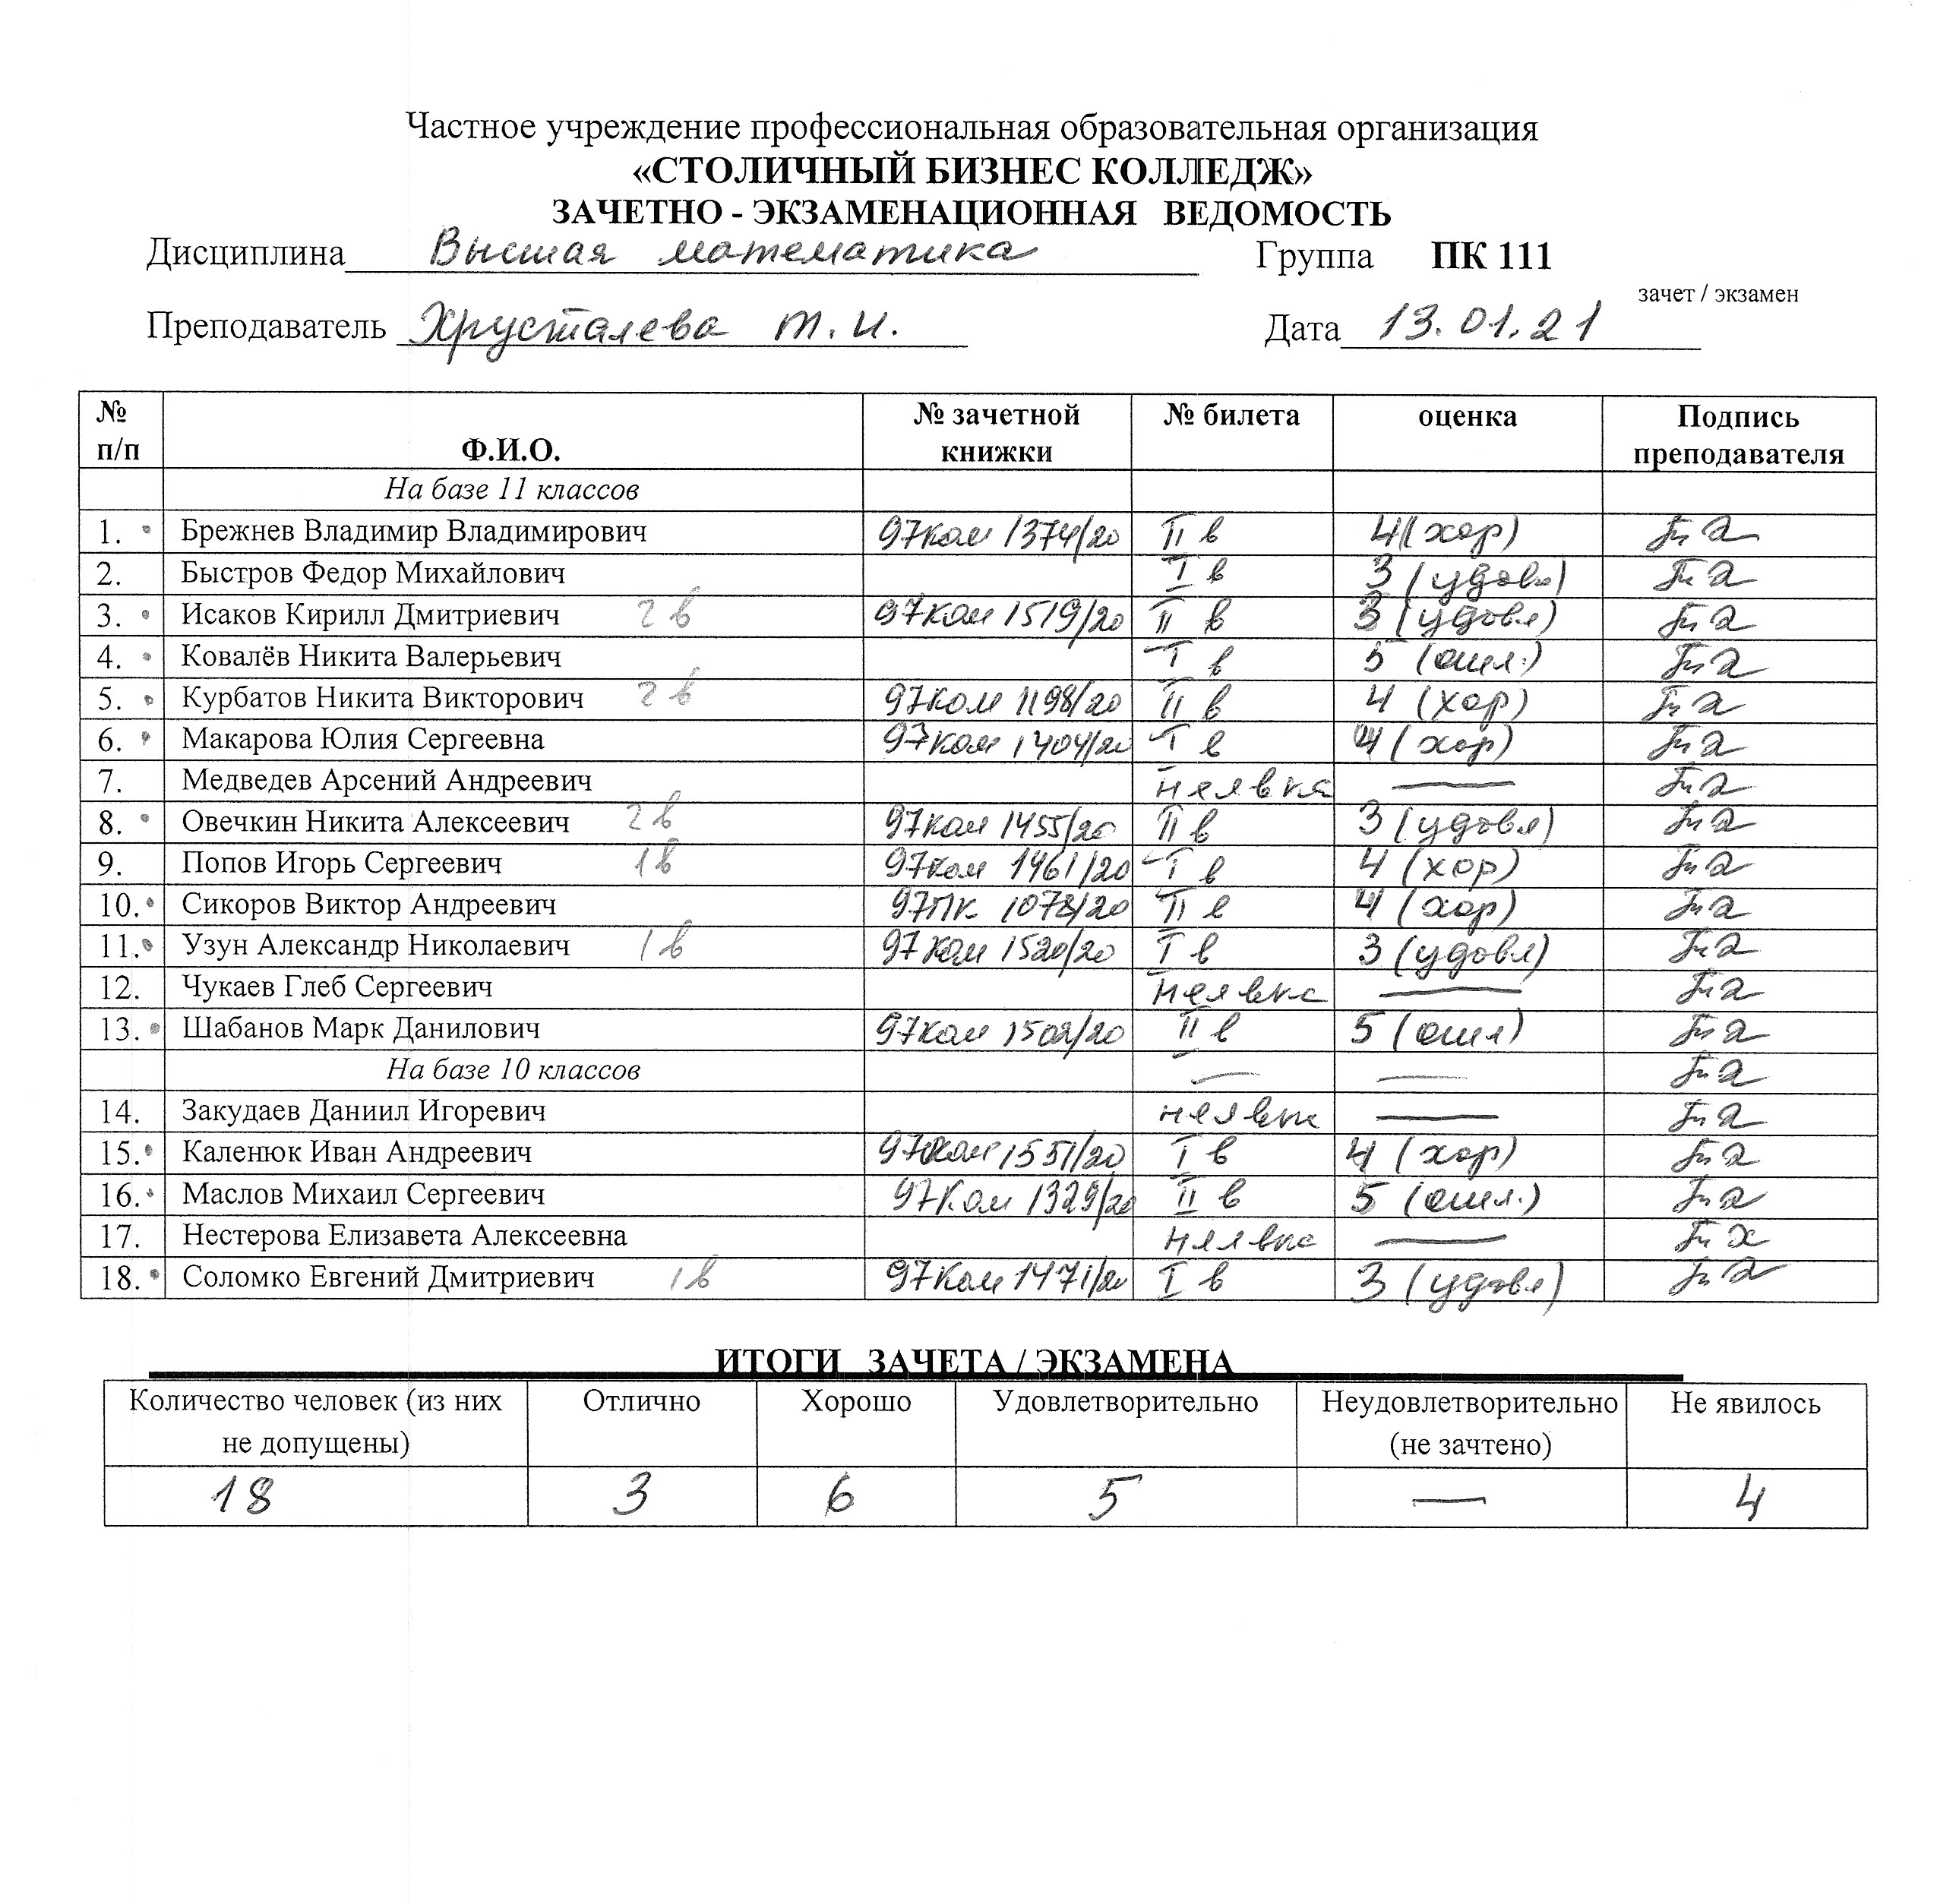 Частное учреждение профессиональная образовательная организация
«СТОЛИЧНЫЙ БИЗНЕС КОЛЛЕДЖ»
ЗАЧЕТНО - ЭКЗАМЕНАЦИОННАЯ ВЕДОМОСТЬ
Дисциплина Высшая математика Группа ПК 111
зачет / экзамен
Преподаватель Хрусталева Т.И. Дата 13.01.21
№ п/п Ф.И.О. № зачетной книжки № билета оценка Подпись преподавателя
На базе 11 классов
1. Брежнев Владимир Владимирович 97ком 1374/20 II в 4 (хор)
2. Быстров Федор Михайлович I в 3 (удовл)
3. Исаков Кирилл Дмитриевич 2 в 97ком 1519/20 II в 3 (удовл)
4. Ковалёв Никита Валерьевич I в 5 (отл.)
5. Курбатов Никита Викторович 2 в 97ком 1198/20 II в 4 (хор)
6. Макарова Юлия Сергеевна 97ком 1404/20 I в 4 (хор)
7. Медведев Арсений Андреевич неявка —
8. Овечкин Никита Алексеевич 2 в 97ком 1455/20 II в 3 (удовл)
9. Попов Игорь Сергеевич 1 в 97ком 1461/20 I в 4 (хор)
10. Сикоров Виктор Андреевич 97ПК 1078/20 II в 4 (хор)
11. Узун Александр Николаевич 1 в 97ком 1520/20 I в 3 (удовл)
12. Чукаев Глеб Сергеевич неявка —
13. Шабанов Марк Данилович 97ком 1502/20 II в 5 (отл)
На базе 10 классов — —
14. Закудаев Даниил Игоревич неявка —
15. Каленюк Иван Андреевич 97ком 1551/20 I в 4 (хор)
16. Маслов Михаил Сергеевич 97ком 1329/20 II в 5 (отл.)
17. Нестерова Елизавета Алексеевна неявка —
18. Соломко Евгений Дмитриевич 1 в 97ком 1471/20 I в 3 (удовл)
ИТОГИ ЗАЧЕТА / ЭКЗАМЕНА
Количество человек (из них не допущены) Отлично Хорошо Удовлетворительно Неудовлетворительно (не зачтено) Не явилось
18 3 6 5 — 4